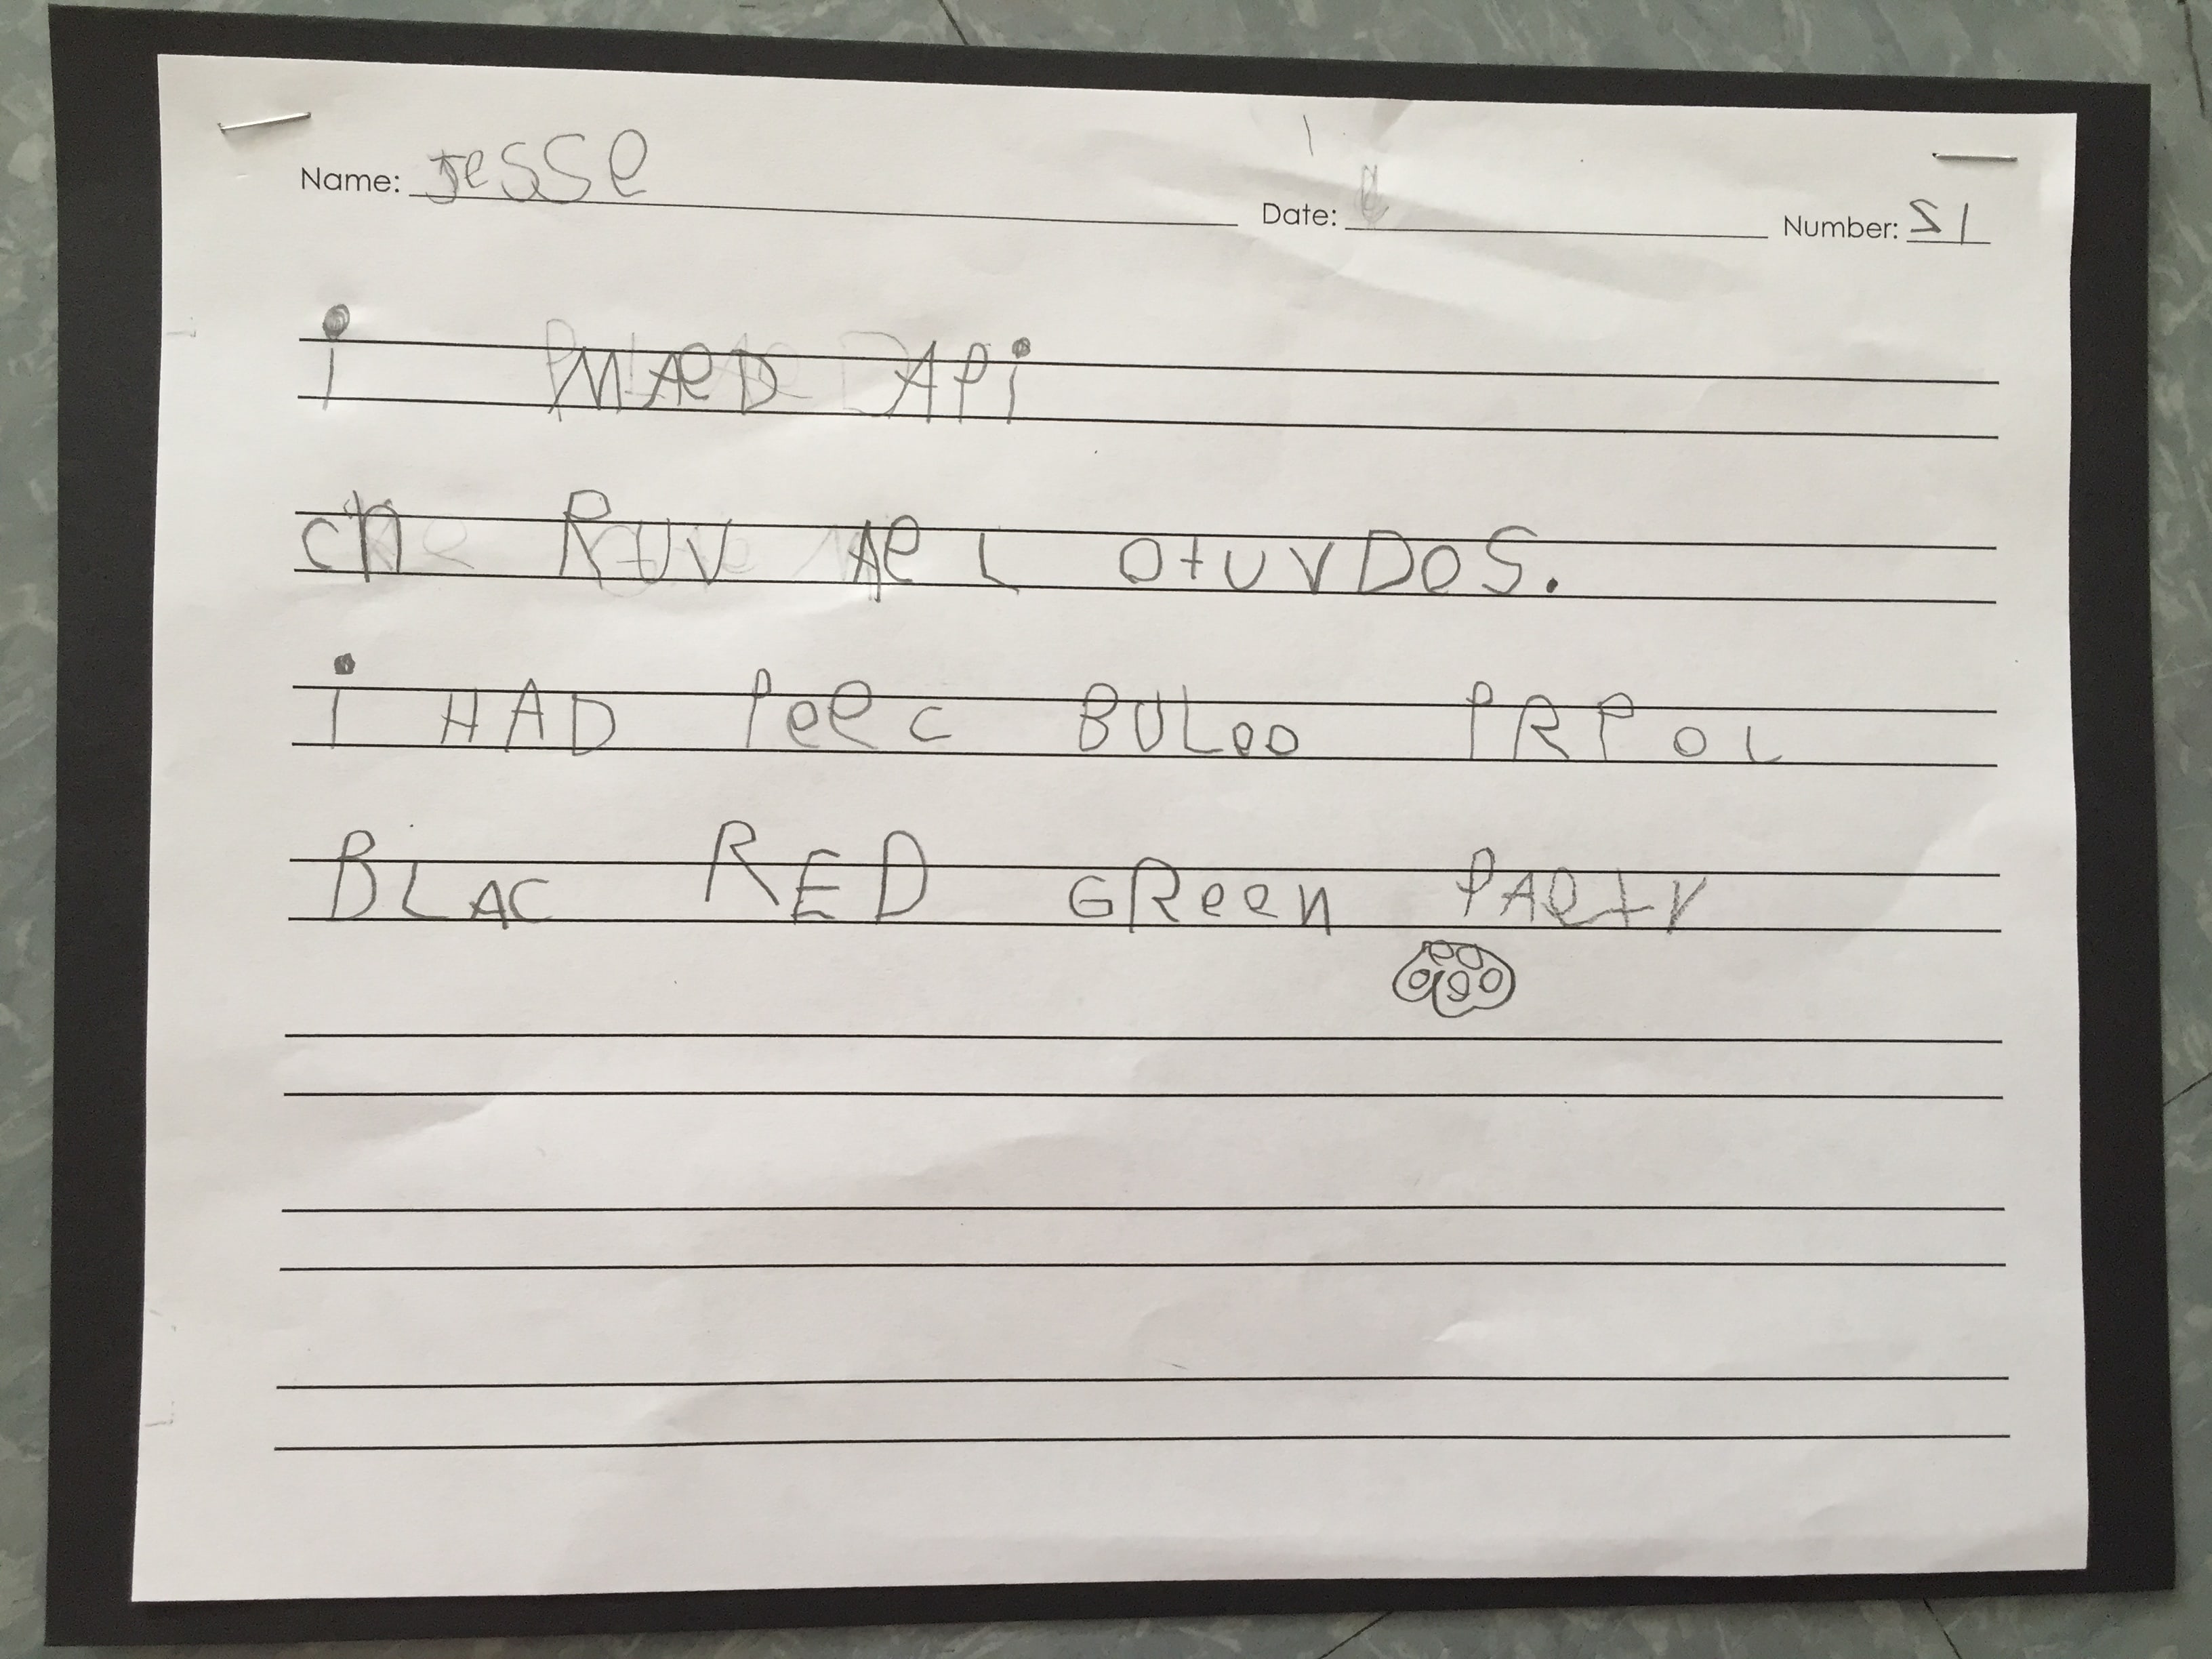 Name: Jesse Date: Number: 21
i MAeD APi
cn RUV Ae L OtUVDOS.
i HAD Peec BULoo PRPOL
BLAC RED GReen PARty